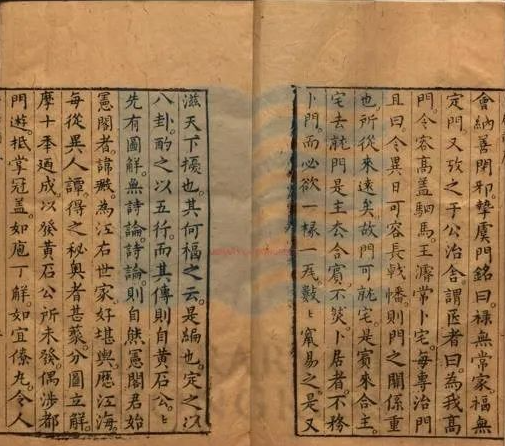 會納善閉邪。摯虞門銘曰。祿無常家。福無
定門。又攷之于公治舍。謂匠者曰。為我高
門。令容高盖駟馬。王濬常卜宅。每專治門
且曰。令異日可容長戟幡。則門之關係重
也。所從來遠矣。故門可就宅。是賓來合主。
宅去就門。是主去合賓。不笅。卜居者不務
卜門。而必欲一椽一瓦。數〻竄易之。是又
滋天下擾也。其何福之云。是編也。定之以
八卦。酌之以五行。而其傳則自黃石公。〻
先有圖解。無詩論。詩論。則自熊憲閣君始
憲閣者。諱𣤶。為江右世家。好堪輿。歷江海。
每從異人譚。得之秘奧者甚蓼。分圖立解。
摩十年廼成。以發黃石公所未發。偶涉都
門遊。抵掌冠盖。如庖丁解。如宜僚丸。令人